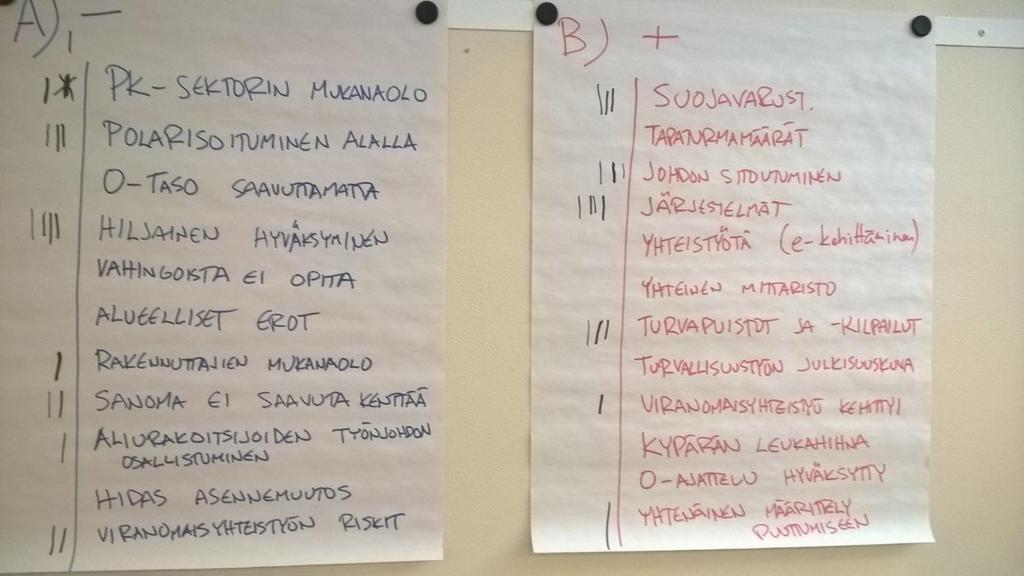 A) -
PK-SEKTORIN MUKANAOLO
POLARISOITUMINEN ALALLA
O-TASO SAAVUTTAMATTA
HILJAINEN HYVÄKSYMINEN
VAHINGOISTA EI OPITA
ALUEELLISET EROT
RAKENNUTTAJIEN MUKANAOLO
SANOMA EI SAAVUTA KENTTÄÄ
ALIURAKOITSIJOIDEN TYÖNJOHDON
OSALLISTUMINEN
HIDAS ASENNEMUUTOS
VIRANOMAISYHTEISTYÖN RISKIT
B) +
SUOJAVARUST.
TAPATURMAMÄÄRÄT
JOHDON SITOUTUMINEN
JÄRJESTELMÄT
YHTEISTYÖTÄ (e-kehittäminen)
YHTEINEN MITTARISTO
TURVAPUISTOT JA -KILPAILUT
TURVALLISUUSTYÖN JULKISUUSKUVA
VIRANOMAISYHTEISTYÖ KEHITTYI
KYPÄRÄN LEUKAHIHNA
O-AJATTELU HYVÄKSYTTY
YHTENÄINEN MÄÄRITTELY
PUUTUMISEEN